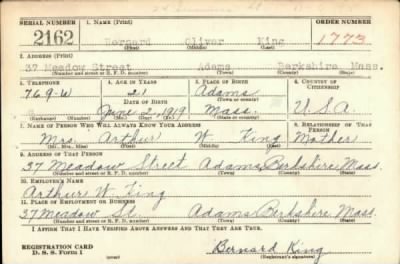 SERIAL NUMBER 1. NAME (Print) ORDER NUMBER
2162 Bernard Oliver King 1773
(First) (Middle) (Last)
2. ADDRESS (Print)
37 Meadow Street Adams Berkshire Mass.
(Number and street or R. F. D. number) (Town) (County) (State)
3. TELEPHONE 4. AGE IN YEARS 5. PLACE OF BIRTH 6. COUNTRY OF CITIZENSHIP
769-W 21 Adams
DATE OF BIRTH (Town or county)
June 2, 1919 Mass. U.S.A.
(Mo.) (Day) (Yr.) (State or country)
7. NAME OF PERSON WHO WILL ALWAYS KNOW YOUR ADDRESS 8. RELATIONSHIP OF THAT PERSON
Mrs. Arthur W. King Mother
(Mr., Mrs., Miss) (First) (Middle) (Last)
9. ADDRESS OF THAT PERSON
37 Meadow Street Adams, Berkshire, Mass.
(Number and street or R. F. D. number) (Town) (County) (State)
10. EMPLOYER'S NAME
Arthur W. King
11. PLACE OF EMPLOYMENT OR BUSINESS
37 Meadow St. Adams Berkshire Mass.
(Number and street or R. F. D. number) (Town) (County) (State)
I AFFIRM THAT I HAVE VERIFIED ABOVE ANSWERS AND THAT THEY ARE TRUE.
REGISTRATION CARD
D. S. S. Form 1 Bernard King
(Registrant's signature)